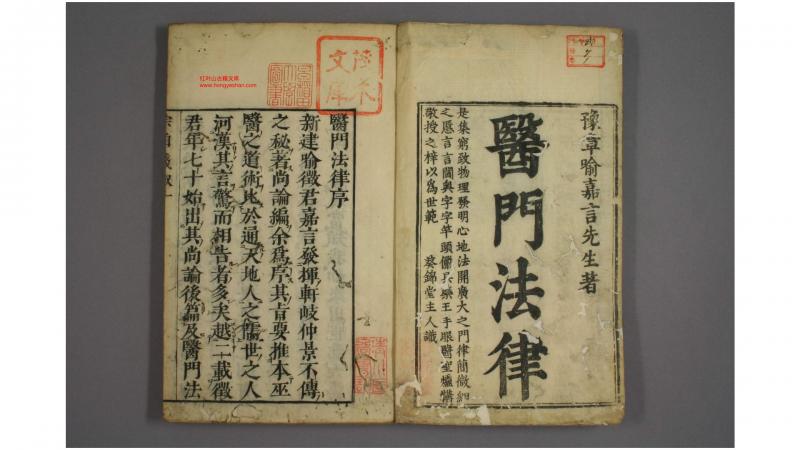 豫章喻嘉言先生著
醫門法律
是集窮致物理發明心地法開廣大之門律簡微細
之愿言言闖與字字竿頭備具藥王手眼醫聖爐韝
敬授之梓以為世範
葵錦堂主人識
陸太
文庫
红叶山古籍文库
www.hongyeshan.com
醫門法律序
新建喻徵君嘉言發揮軒岐仲景不傳
之秘著尚論編余爲序其旨要推本巫
醫之道術比於通天地人之儒世之人
河漢其言驚而相告者多矣越二載徵
君年七十始出其尚論後篇及醫門法